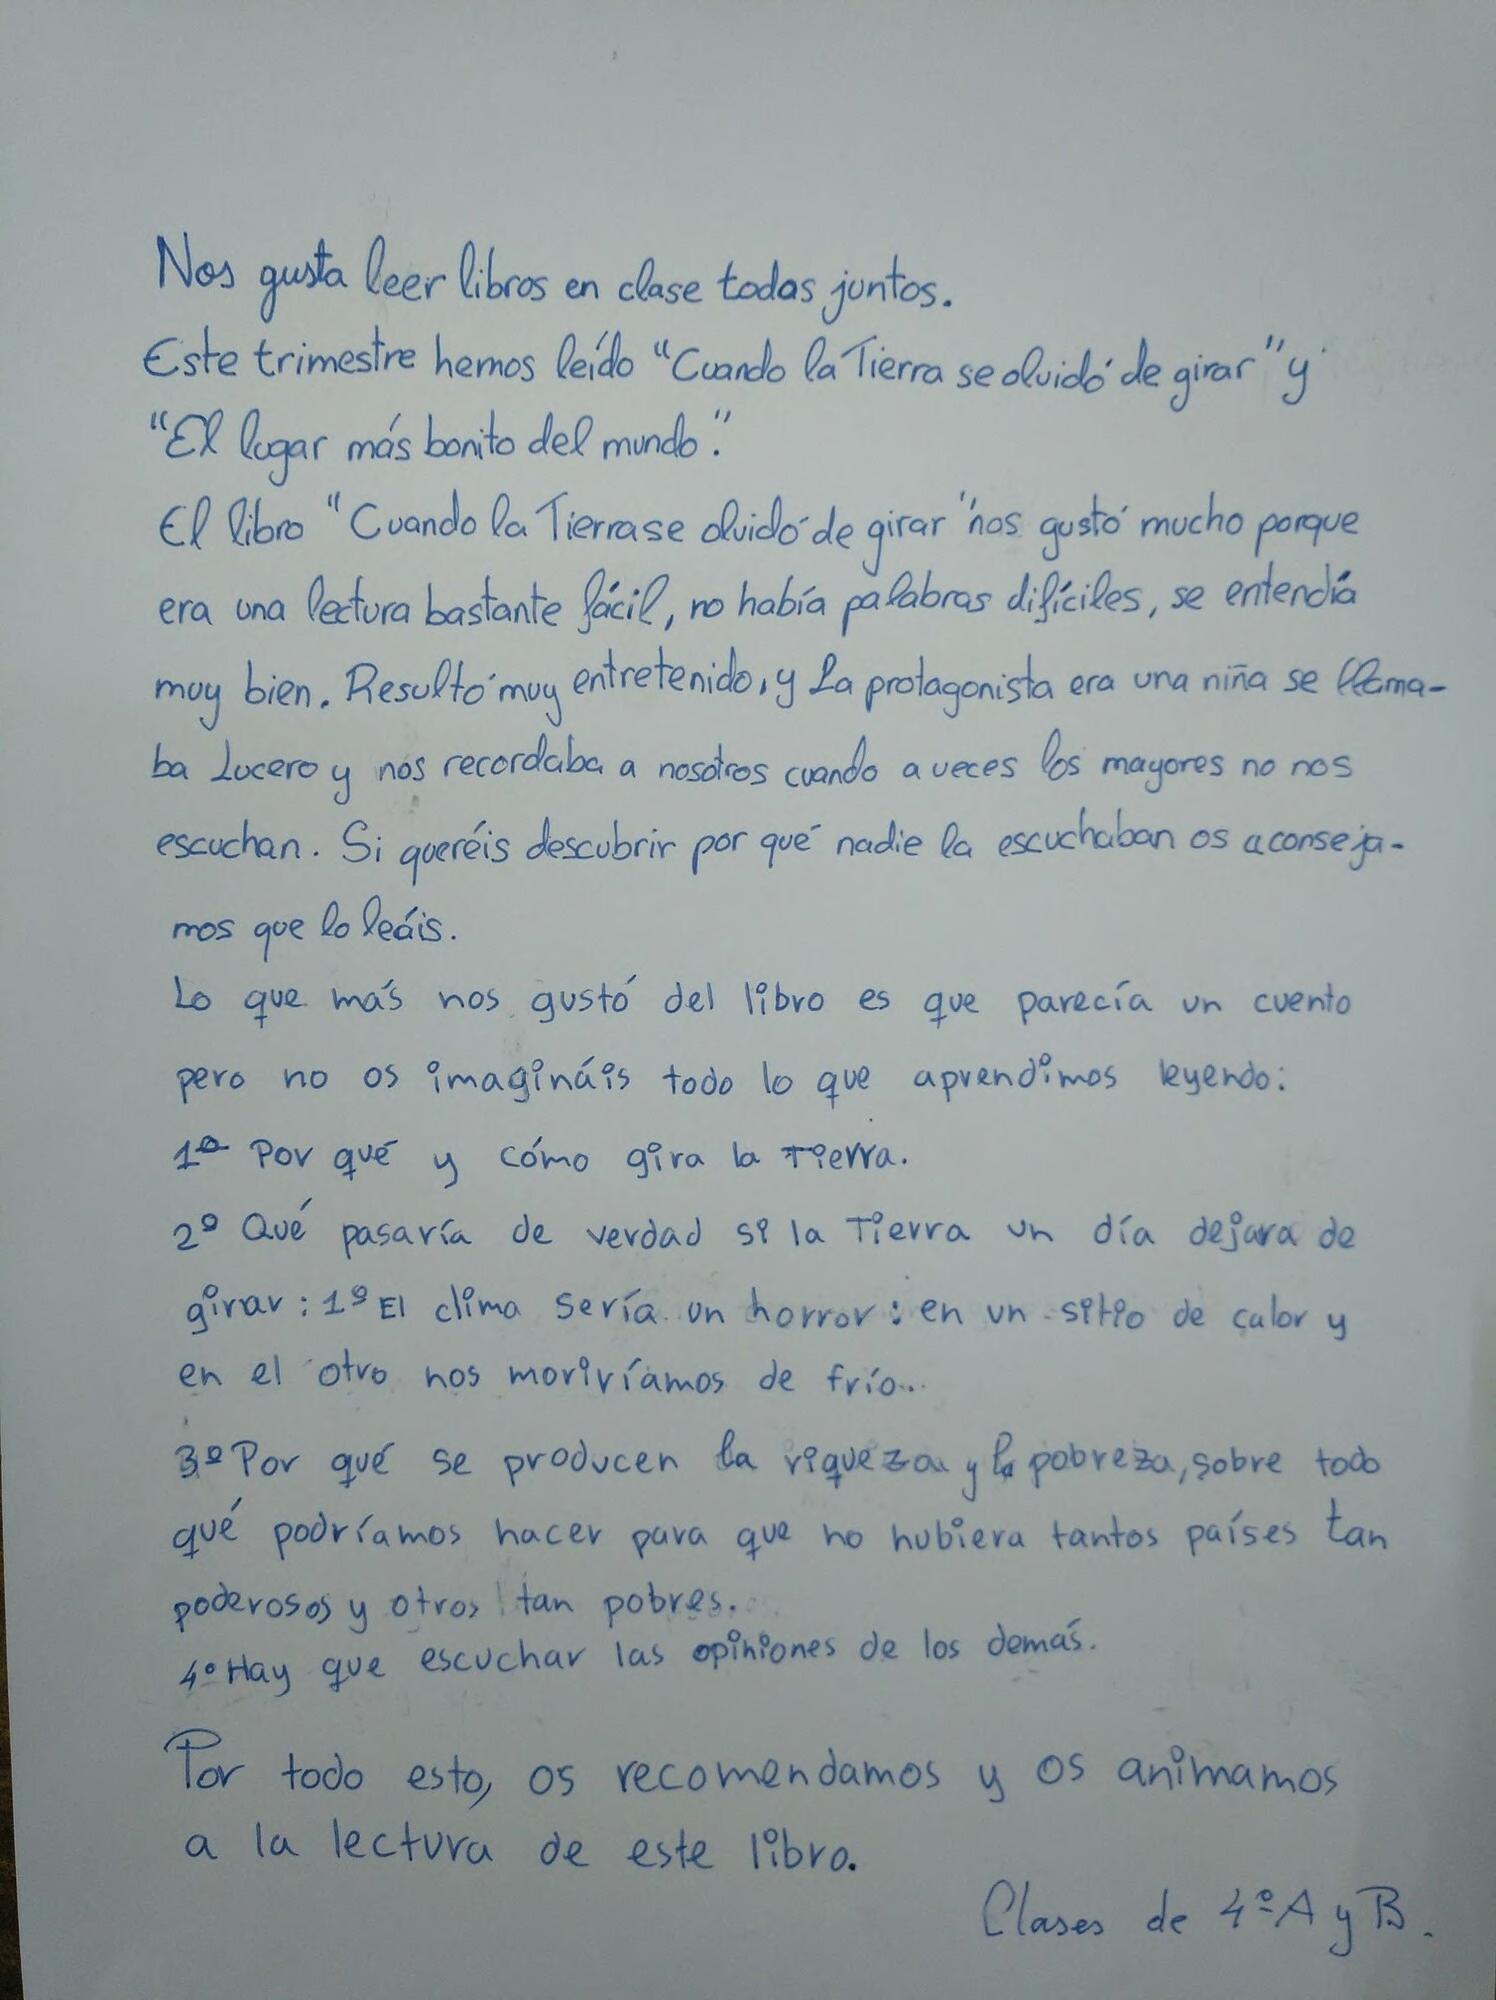 Nos gusta leer libros en clase todas juntos.
Este trimestre hemos leído "Cuando la Tierra se olvidó de girar" y
"El lugar más bonito del mundo".
El libro "Cuando la Tierra se olvidó de girar" nos gustó mucho porque
era una lectura bastante fácil, no había palabras difíciles, se entendía
muy bien. Resultó muy entretenido, y La protagonista era una niña se llama-
ba Lucero y nos recordaba a nosotros cuando a veces los mayores no nos
escuchan. Si queréis descubrir por qué nadie la escuchaban os aconseja-
mos que lo leáis.
Lo que más nos gustó del libro es que parecía un cuento
pero no os imagináis todo lo que aprendimos leyendo:
1º Por qué y cómo gira la Tierra.
2º Qué pasaría de verdad si la Tierra un día dejara de
girar: 1º El clima sería un horror: en un sitio de calor y
en el otro nos moriríamos de frío...
3º Por qué se producen la riqueza y la pobreza, sobre todo
qué podríamos hacer para que no hubiera tantos países tan
poderosos y otros tan pobres.
4º Hay que escuchar las opiniones de los demás.
Por todo esto, os recomendamos y os animamos
a la lectura de este libro.
Clases de 4º A y B.